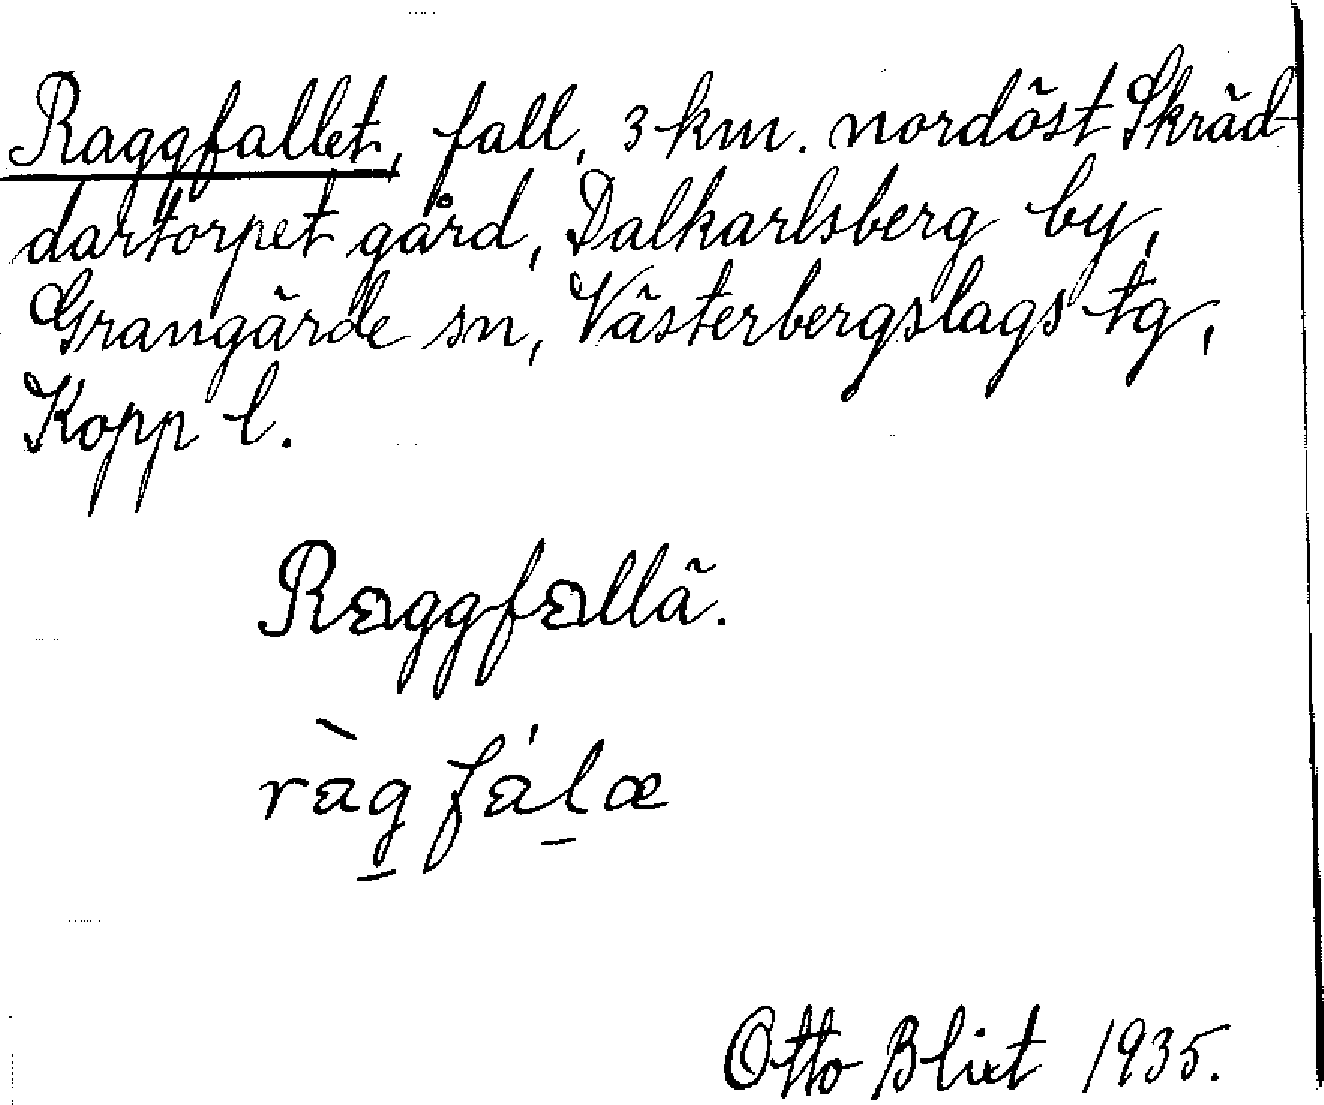 Raggfallet, fall, 3 km. nordöst Skräd-
dartorpet gård, Dalkarlsberg by,
Grangärde sn, Västerbergslags tg,
Kopp l.
Raggfallä.
ràg fálæ
Otto Blixt 1935.